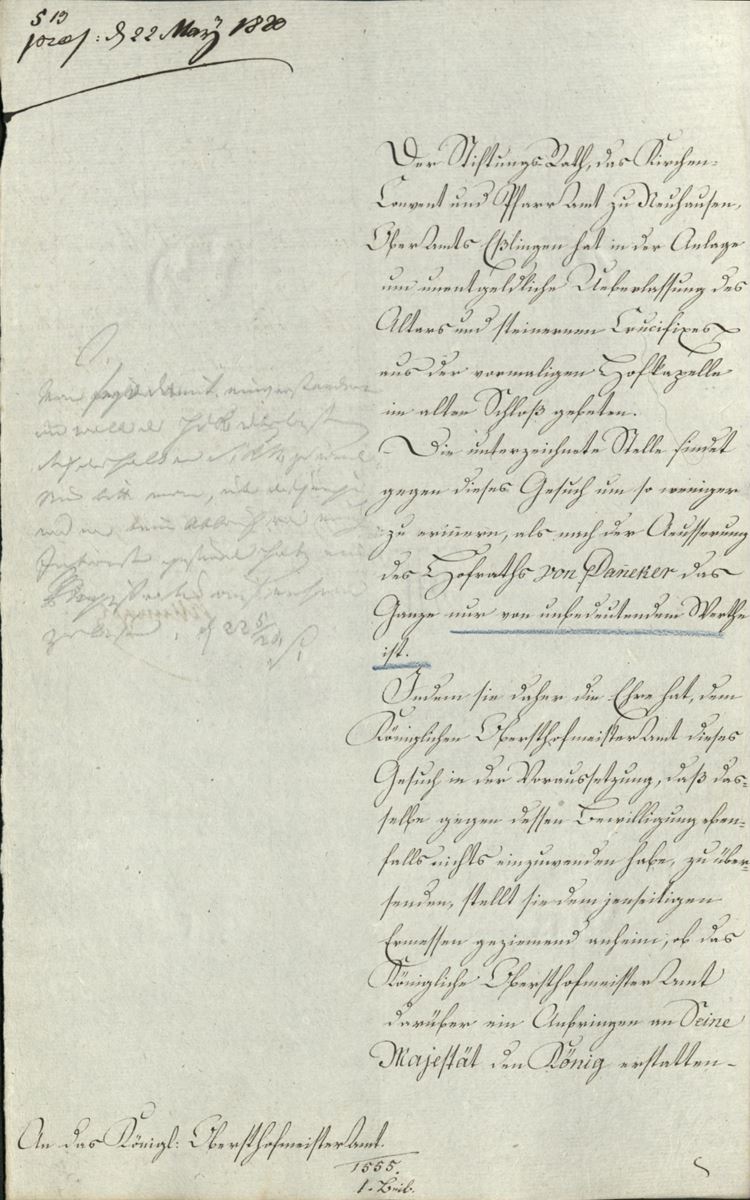 513
præs: d 22 May 1820
Der Stiftungs Rath, das Kirchen-
Convent und Pfarr Amt zu Neuhausen,
Ober Amts Eßlingen hat in der Anlage
um unentgeldliche Ueberlassung des
Altars und steinernen Crucifixes
aus der vormaligen Hofkapelle
im alten Schloß gebeten.
Die unterzeichnete Stelle findet
gegen dieses Gesuch um so weniger
zu erinnern, als nach der Aeusserung
des Hofraths von Dañeker das
Ganze nur von unbedeutendem Werthe
ist.
Indem sie daher die Ehre hat, dem
Königlichen Obersthofmeister Amt dieses
Gesuch in der Voraussetzung, daß das-
selbe gegen dessen Bewilligung eben-
falls nichts einzuwenden habe, zu über-
senden, stellt sie dem jenseitigen
Ermessen geziemend anheim, ob das
Königliche Obersthofmeister Amt
darüber ein Anbringen an Seine
Majestät den König erstatten-
Man sey damit einverstanden
zu lesen, d 22 5/20
An das Königl: Obersthofmeister Amt.
1555.
1. Beil.